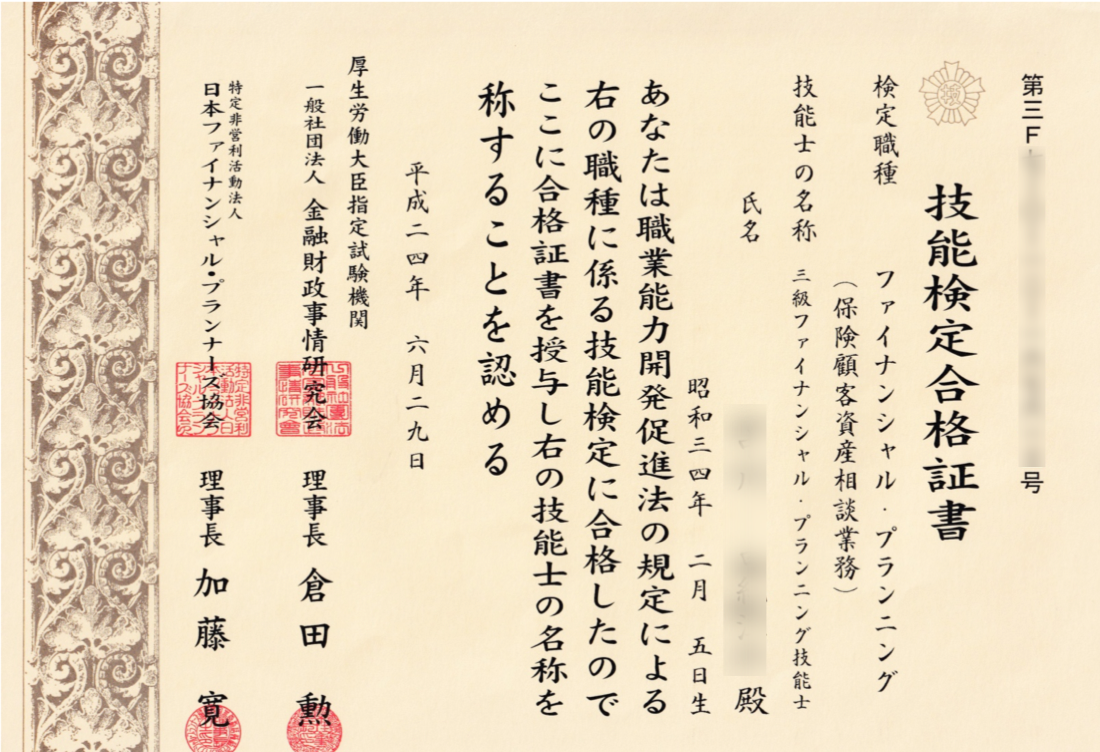 第三F
号
技能検定合格証書
検定職種 ファイナンシャル・プランニング
(保険顧客資産相談業務)
技能士の名称 三級ファイナンシャル・プランニング技能士
氏名
殿
昭和三四年 二月 五日生
あなたは職業能力開発促進法の規定による
右の職種に係る技能検定に合格したので
ここに合格証書を授与し右の技能士の名称を
称することを認める
平成二四年 六月二九日
厚生労働大臣指定試験機関
一般社団法人 金融財政事情研究会 理事長 倉田 勲
特定非営利活動法人
日本ファイナンシャル・プランナーズ協会 理事長 加藤 寛